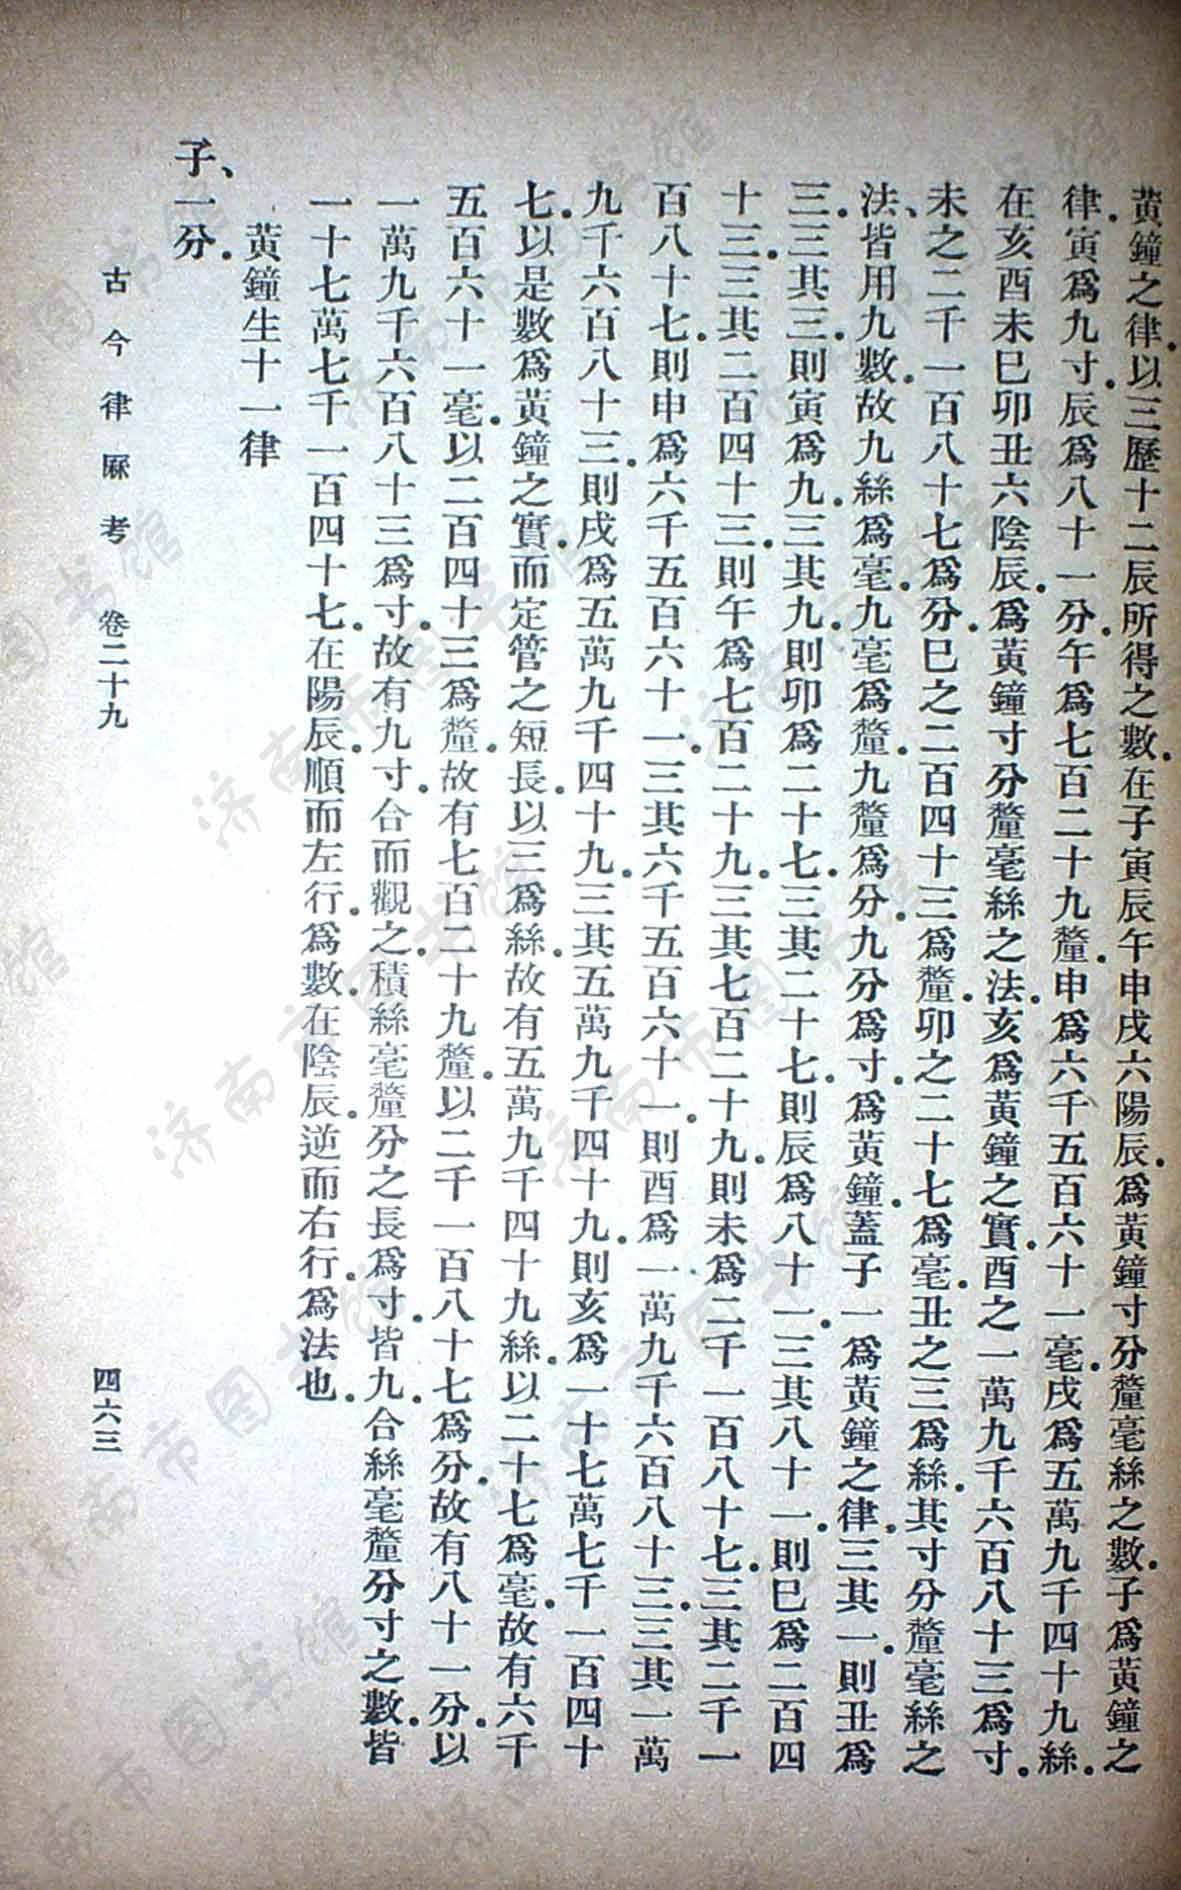 黃鐘之律。以三歷十二辰所得之數。在子寅辰午申戌六陽辰。爲黃鐘寸分釐毫絲之數。子爲黃鐘之
律。寅爲九寸。辰爲八十一分。午爲七百二十九釐。申爲六千五百六十一毫。戌爲五萬九千四十九絲。
在亥酉未巳卯丑六陰辰。爲黃鐘寸分釐毫絲之法。亥爲黃鐘之實。酉之一萬九千六百八十三爲寸。
未之二千一百八十七爲分。巳之二百四十三爲釐。卯之二十七爲毫。丑之三爲絲。其寸分釐毫絲之
法、皆用九數。故九絲爲毫。九毫爲釐。九釐爲分。九分爲寸。爲黃鐘。蓋子一爲黃鐘之律。三其一。則丑爲
三。三其三。則寅爲九。三其九。則卯爲二十七。三其二十七。則辰爲八十一。三其八十一。則巳爲二百四
十三。三其二百四十三。則午爲七百二十九。三其七百二十九。則未爲二千一百八十七。三其二千一
百八十七。則申爲六千五百六十一。三其六千五百六十一。則酉爲一萬九千六百八十三。三其一萬
九千六百八十三。則戌爲五萬九千四十九。三其五萬九千四十九。則亥爲一十七萬七千一百四十
七。以是數爲黃鐘之實。而定管之短長。以三爲絲。故有五萬九千四十九絲。以二十七爲毫。故有六千
五百六十一毫。以二百四十三爲釐。故有七百二十九釐。以二千一百八十七爲分。故有八十一分。以
一萬九千六百八十三爲寸。故有九寸。合而觀之。積絲毫釐分之長爲寸。皆九。合絲毫釐分寸之數。皆
一十七萬七千一百四十七。在陽辰。順而左行。爲數。在陰辰。逆而右行。爲法也。
黃鐘生十一律
子、一分。
古今律厤考 卷二十九 四六三